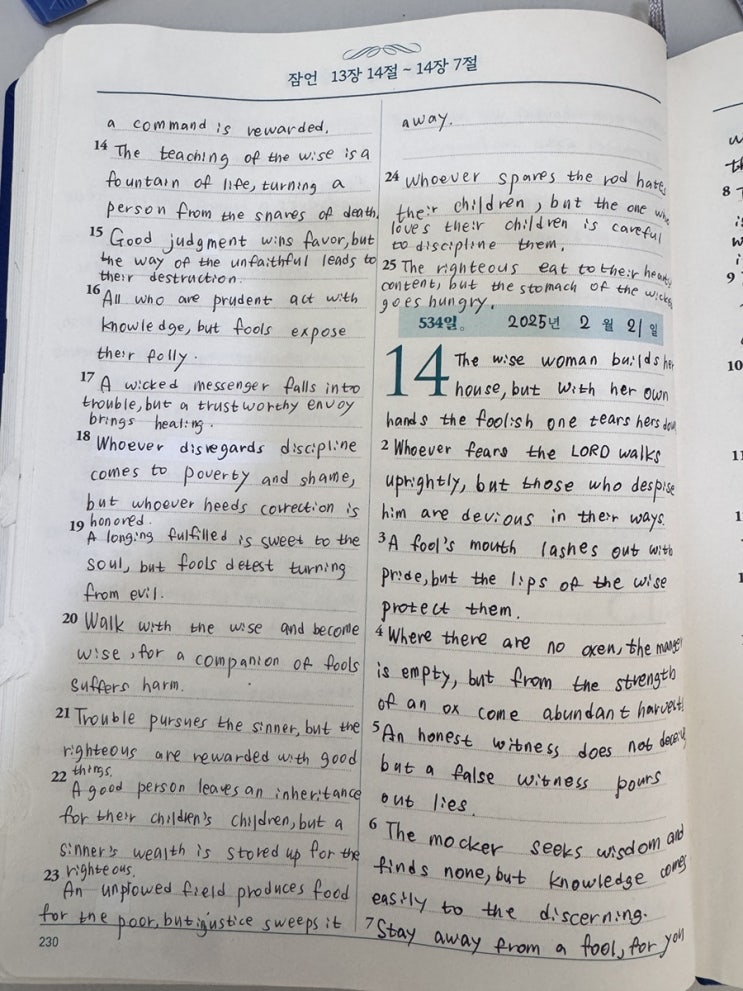 잠언 13장 14절 ~ 14장 7절
a command is rewarded.
14 The teaching of the wise is a
fountain of life, turning a
person from the snares of death.
15 Good judgment wins favor, but
the way of the unfaithful leads to
their destruction.
16 All who are prudent act with
knowledge, but fools expose
their folly.
17 A wicked messenger falls into
trouble, but a trustworthy envoy
brings healing.
18 Whoever disregards discipline
comes to poverty and shame,
but whoever heeds correction is
honored.
19 A longing fulfilled is sweet to the
soul, but fools detest turning
from evil.
20 Walk with the wise and become
wise, for a companion of fools
suffers harm.
21 Trouble pursues the sinner, but the
righteous are rewarded with good
things.
22 A good person leaves an inheritance
for their children's children, but a
sinner's wealth is stored up for the
righteous.
23 An unplowed field produces food
for the poor, but injustice sweeps it
230
away.
24 Whoever spares the rod hates
their children, but the one who
loves their children is careful
to discipline them.
25 The righteous eat to their hearts
content, but the stomach of the wicked
goes hungry.
534일. 2025년 2월 21일
14 The wise woman builds her
house, but with her own
hands the foolish one tears hers down
2 Whoever fears the LORD walks
uprightly, but those who despise
him are devious in their ways.
3 A fool's mouth lashes out with
pride, but the lips of the wise
protect them.
4 Where there are no oxen, the manger
is empty, but from the strength
of an ox come abundant harvests
5 An honest witness does not deceive,
but a false witness pours
out lies.
6 The mocker seeks wisdom and
finds none, but knowledge comes
easily to the discerning.
7 Stay away from a fool, for you
8
9
10